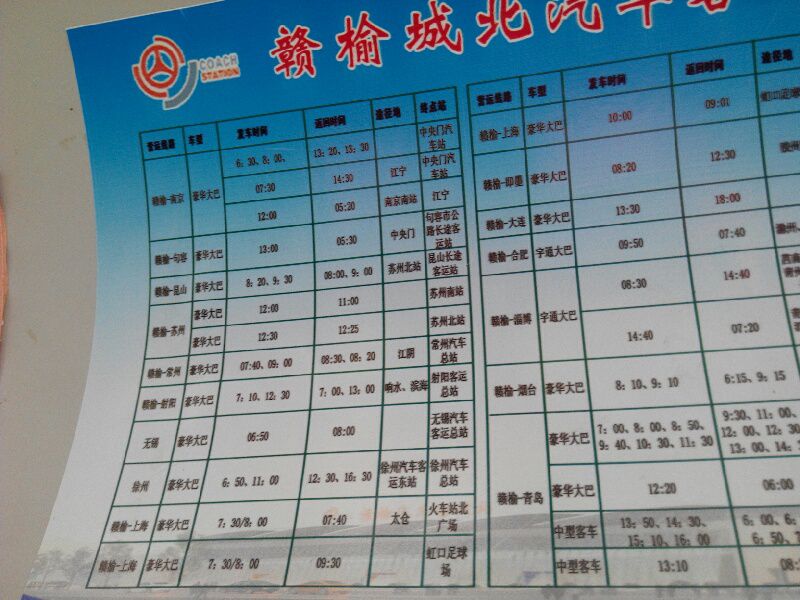 COACH
STATION
赣榆城北汽车客
营运线路 车型 发车时间 返回时间 途径地 终点站
赣榆-南京 豪华大巴 6：30、8：00、 13：20、13：30 中央门汽车站
07:30 14:30 江宁 中央门汽车站
12:00 05:20 南京南站 江宁
赣榆-句容 豪华大巴 13:00 05:30 中央门 句容市公路长途客运站
赣榆-昆山 豪华大巴 8：20、9：30 08:00、9：00 苏州北站 昆山长途客运站
赣榆-苏州 豪华大巴 12:00 11:00 苏州南站
豪华大巴 12:30 12:25 苏州北站
赣榆-常州 豪华大巴 07:40、09:00 08:30、08：20 江阴 常州汽车总站
赣榆-射阳 豪华大巴 7：10、12：30 7：00、13：00 响水、滨海 射阳客运总站
无锡 豪华大巴 06:50 08:00 无锡汽车客运总站
徐州 豪华大巴 6：50、11：00 12：30、16：30 徐州汽车客运东站 徐州汽车总站
赣榆-上海 豪华大巴 7：30/8：00 07:40 太仓 火车站北广场
赣榆-上海 豪华大巴 7：30/8：00 09:30 虹口足球场
营运线路 车型 发车时间 返回时间 途径地
赣榆-上海 豪华大巴 10:00 09:01 虹口足球
赣榆-即墨 豪华大巴 08:20 12:30
赣榆-大连 豪华大巴 13:30 18:00
赣榆-合肥 宇通大巴 09:50 07:40
赣榆-淄博 宇通大巴 08:30 14:40
14:40 07:20
赣榆-烟台 豪华大巴 8：10、9：10 6:15、9：15
赣榆-青岛 豪华大巴 7：00、8：00、8：50、 9:30、11：00、
9：40、10：30、11：30 12：00、12：30
13：00、14：
豪华大巴 12:20 06:00
中型客车 13：50、14：30、 6：00、6：
15：10、16：00 6：50、7
中型客车 13:10